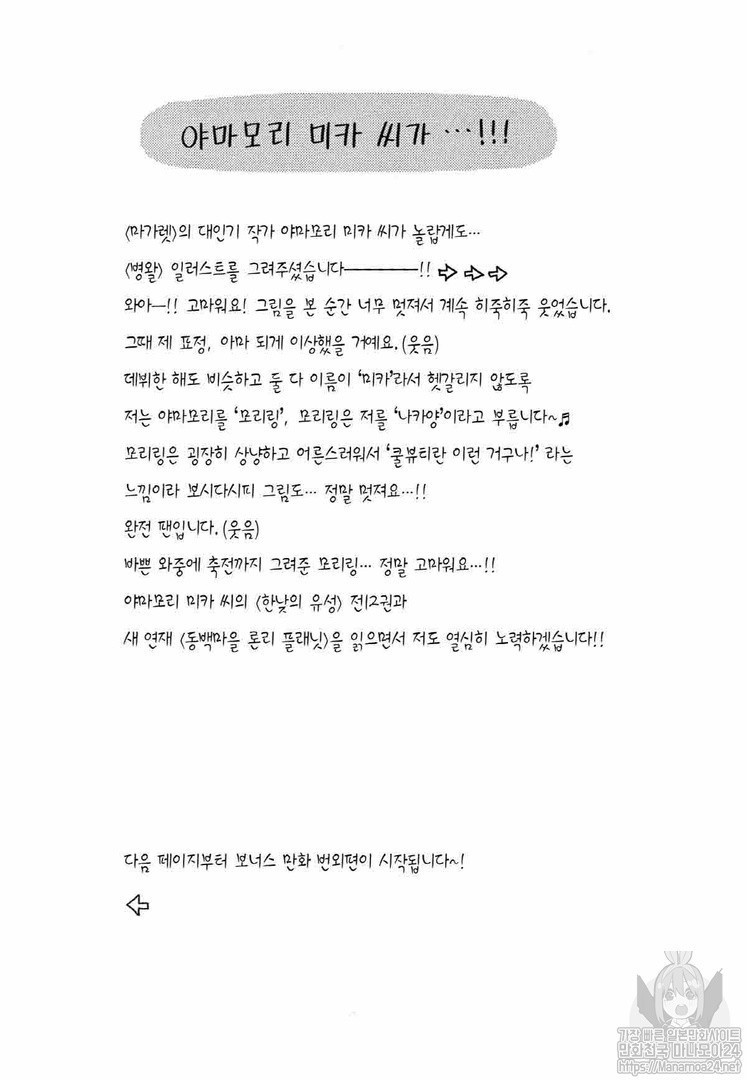 야마모리 미카 씨가 …!!!
〈마가렛〉의 대인기 작가 야마모리 미카 씨가 놀랍게도…
〈병왈〉 일러스트를 그려주셨습니다────!! ⇨⇨⇨
와아—!! 고마워요! 그림을 본 순간 너무 멋져서 계속 히죽히죽 웃었습니다.
그때 제 표정, 아마 되게 이상했을 거예요.(웃음)
데뷔한 해도 비슷하고 둘 다 이름이 ‘미카’라서 헷갈리지 않도록
저는 야마모리를 ‘모리링’, 모리링은 저를 ‘나카양’이라고 부릅니다~♬
모리링은 굉장히 상냥하고 어른스러워서 ‘쿨뷰티란 이런 거구나!’ 라는
느낌이라 보시다시피 그림도… 정말 멋져요…!!
완전 팬입니다.(웃음)
바쁜 와중에 축전까지 그려준 모리링… 정말 고마워요…!!
야마모리 미카 씨의 〈한낮의 유성〉 전12권과
새 연재 〈동백마을 론리 플래닛〉을 읽으면서 저도 열심히 노력하겠습니다!!
다음 페이지부터 보너스 만화 번외편이 시작됩니다~!
⇦
가장빠른 일본만화사이트
만화천국 마나모아24
https://Manamoa24.net